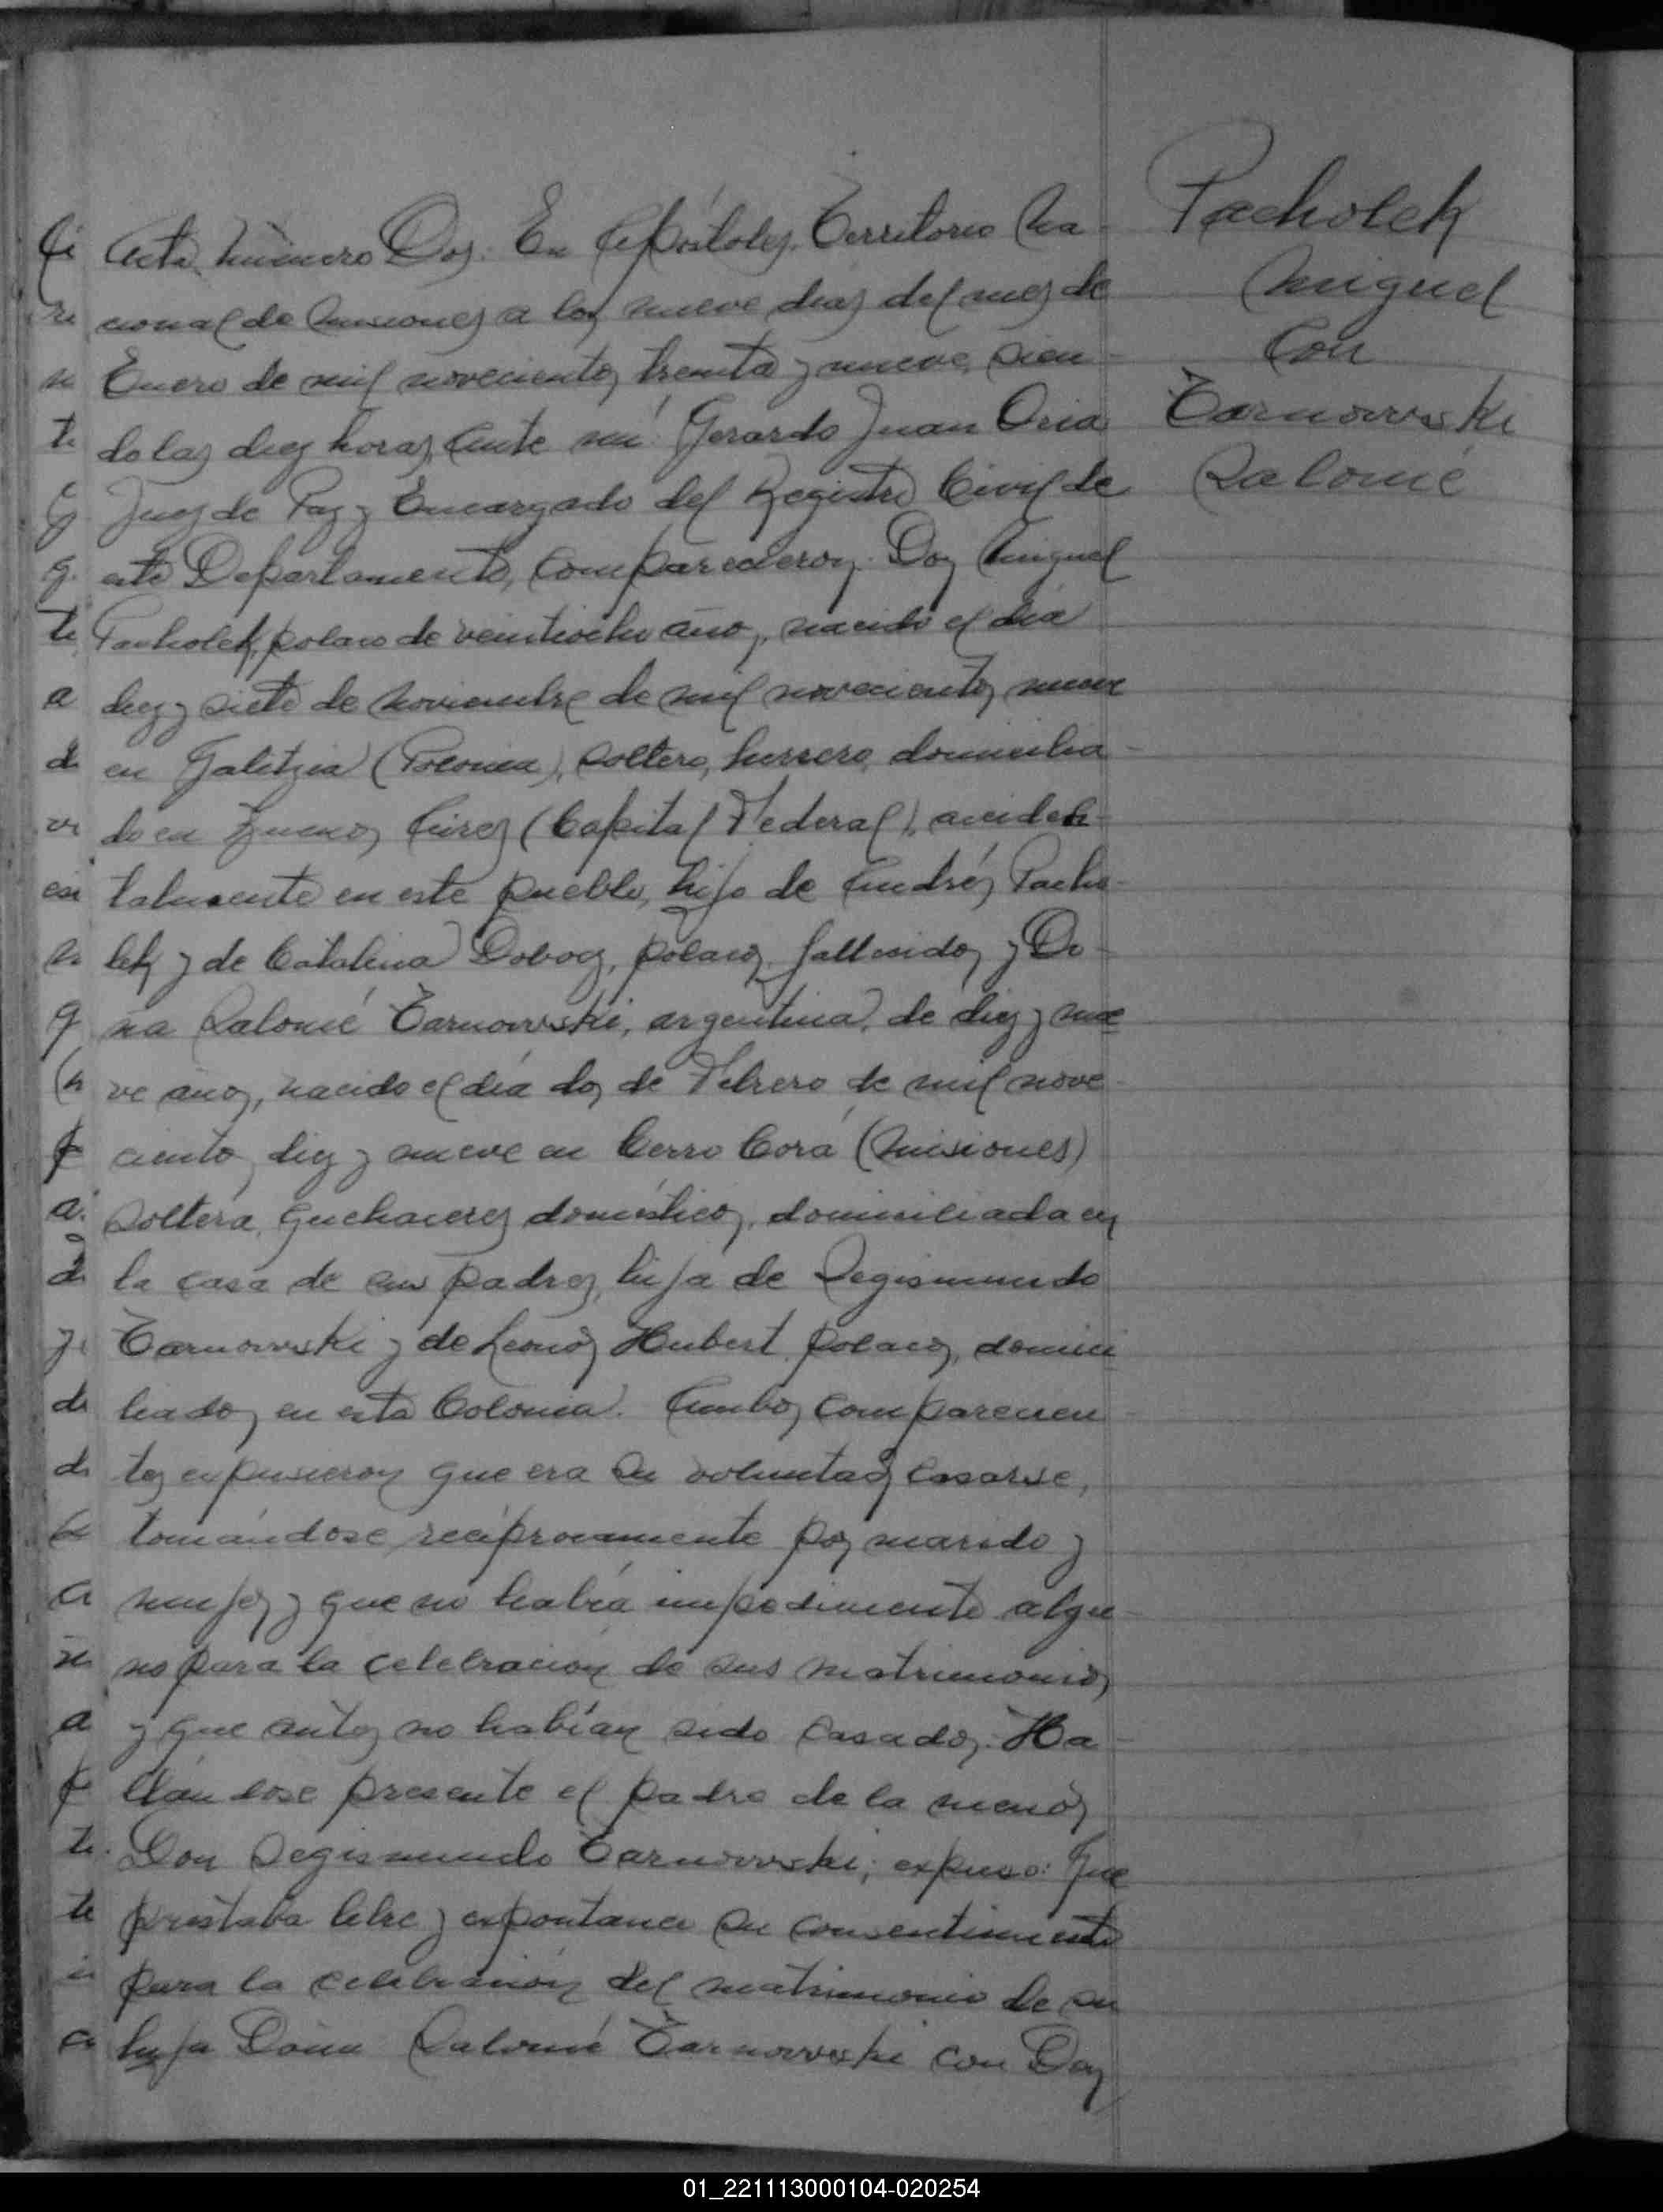 Acta número Dos. En Apóstoles, Territorio Na-
cional de Misiones a los nueve dias del mes de
Enero de mil novecientos treinta y nueve, sien-
do las diez horas, Ante mi: Gerardo Juan Oria
Juez de Paz y Encargado del Registro Civil de
este Departamento, comparecieron: Don Miguel
Pacholek, polaco de veintiocho años, nacido el día
diez y siete de noviembre de mil novecientos nueve
en Galitzia (Polonia), soltero, herrero, domicilia-
do en Buenos Aires (Capital Federal), acciden-
talmente en este pueblo, hijo de Andrés Pacho-
lek y de Catalina polacos, fallecidos y Do-
ña Salomé Tarnowski, argentina, de diez y nue
ve años, nacido el día dos de Febrero de mil nove-
cientos diez y nueve en Cerro Corá (Misiones)
soltera, quehaceres domésticos, domiciliada en
la casa de sus padres, hija de Segismundo
Tarnowski y de Leonor Hubert, polacos, domici
liados en esta Colonia. Ambos comparecien-
tes expusieron que era su voluntad casarse,
tomándose recíprocamente por marido y
mujer y que no había impedimento algu-
no para la celebración de sus matrimonio,
y que antes no habían sido casados. Ha-
llándose presente el padre de la menor
Don Segismundo Tarnowski; expuso: Que
prestaba libre y expontanea su consentimiento
para la celebración del matrimonio de su
hija Doña Salomé Tarnowski con Don
Pacholek
Miguel
Con
Tarnowski
Salomé
01_221113000104-020254